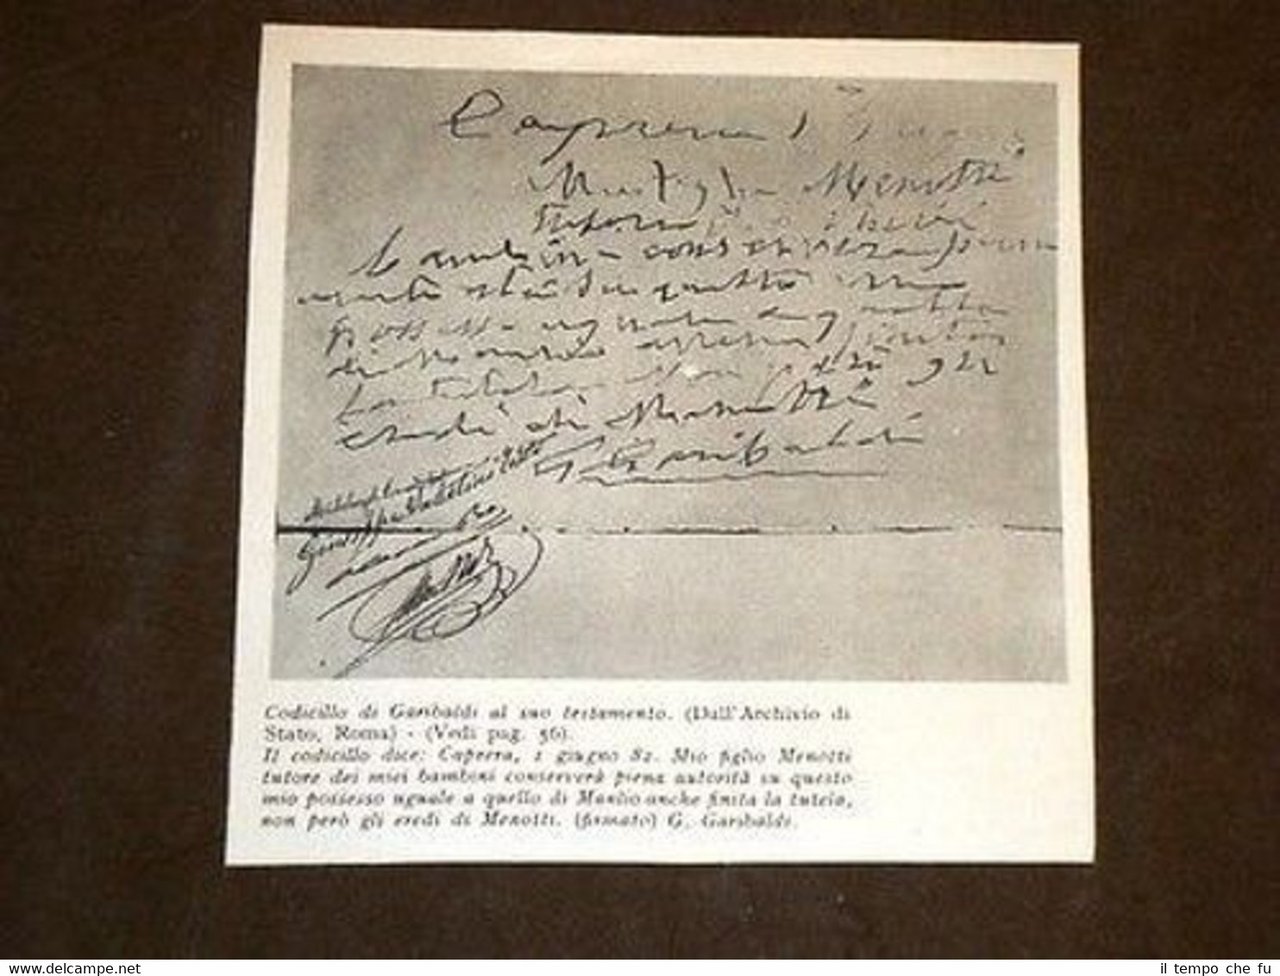 Caprera 1 Giugno
Mio figlio Menotti
tutore dei miei
bambini conserverà piena
autorità su questo mio
possesso uguale a quello
di Manlio anche finita
la tutela non però gli
eredi di Menotti
G Garibaldi
Codicillo di Garibaldi al suo testamento. (Dall'Archivio di
Stato, Roma) - (Vedi pag. 56).
Il codicillo dice: Caprera, 1 giugno 82. Mio figlio Menotti
tutore dei miei bambini conserverà piena autorità su questo
mio possesso uguale a quello di Manlio anche finita la tutela,
non però gli eredi di Menotti. (firmato) G. Garibaldi.
www.delcampe.net
il tempo che fu